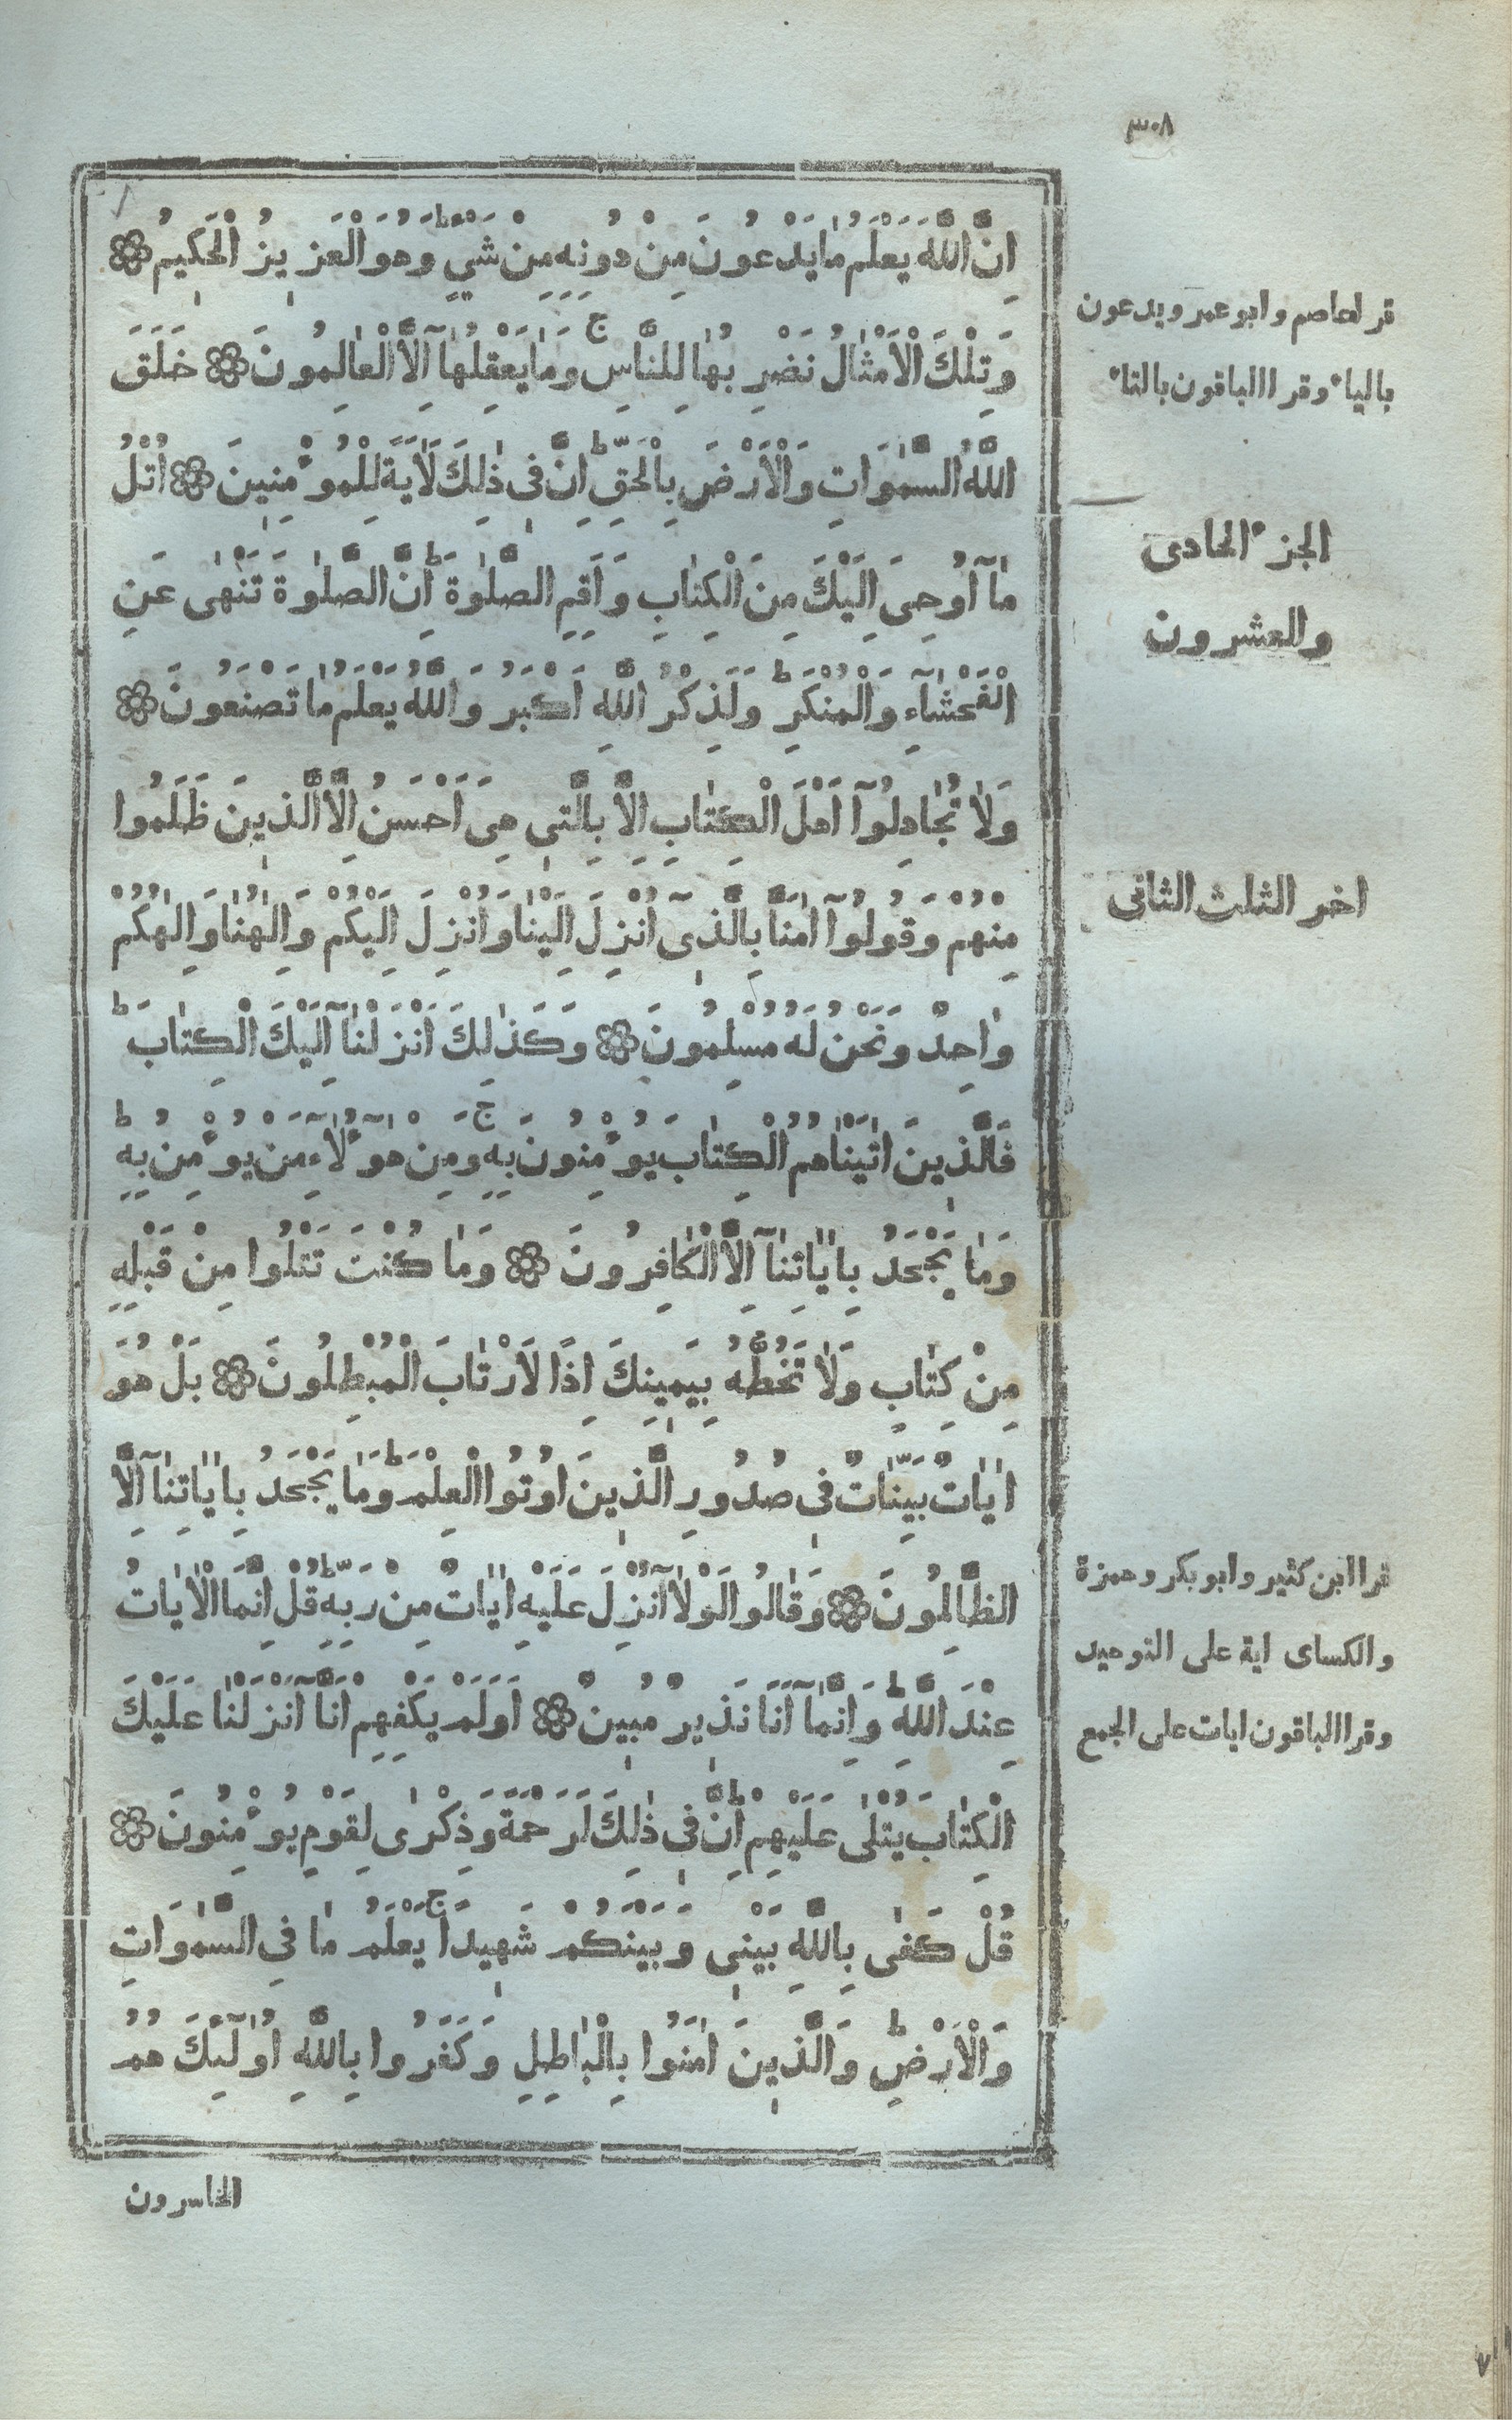 ٣٠٨
اِنَّ اللَّهَ يَعْلَمُ مٰا يَدْعُونَ مِنْ دُونِهِ مِنْ شَيْءٍ ۚ وَهُوَ الْعَزِيزُ الْحَكِيمُ
وَتِلْكَ الْاَمْثٰالُ نَضْرِبُهٰا لِلنَّاسِ ۚ وَمٰا يَعْقِلُهٰآ اِلَّا الْعٰالِمُونَ خَلَقَ
اللَّهُ السَّمٰوَاتِ وَالْاَرْضَ بِالْحَقِّ ؕ اِنَّ فِى ذٰلِكَ لَاٰيَةً لِلْمُوْمِنِينَ اُتْلُ
مٰآ اُوحِىَ اِلَيْكَ مِنَ الْكِتٰابِ وَاَقِمِ الصَّلٰوةَ ؕ اِنَّ الصَّلٰوةَ تَنْهٰى عَنِ
الْفَحْشٰآءِ وَالْمُنْكَرِ ؕ وَلَذِكْرُ اللَّهِ اَكْبَرُ وَاللَّهُ يَعْلَمُ مٰا تَصْنَعُونَ
وَلٰا تُجٰادِلُوآ اَهْلَ الْكِتٰابِ اِلَّا بِالَّتِى هِىَ اَحْسَنُ اِلَّا الَّذِينَ ظَلَمُوا
مِنْهُمْ وَقُولُوآ اٰمَنَّا بِالَّذِىٓ اُنْزِلَ اِلَيْنٰا وَاُنْزِلَ اِلَيْكُمْ وَاِلٰهُنٰا وَاِلٰهُكُمْ
وٰاحِدٌ وَنَحْنُ لَهُ مُسْلِمُونَ وَكَذٰلِكَ اَنْزَلْنٰآ اِلَيْكَ الْكِتٰابَ ؕ
فَالَّذِينَ اٰتَيْنٰاهُمُ الْكِتٰابَ يُوْمِنُونَ بِهِ ۚ وَمِنْ هٰٓوُلٰآءِ مَنْ يُوْمِنُ بِهِ ؕ
وَمٰا يَجْحَدُ بِاٰيٰاتِنٰآ اِلَّا الْكٰافِرُونَ وَمٰا كُنْتَ تَتْلُوا مِنْ قَبْلِهِ
مِنْ كِتٰابٍ وَلٰا تَخُطُّهُ بِيَمِينِكَ اِذًا لَارْتٰابَ الْمُبْطِلُونَ بَلْ هُوَ
اٰيٰاتٌ بَيِّنٰاتٌ فِى صُدُورِ الَّذِينَ اُوتُوا الْعِلْمَ ؕ وَمٰا يَجْحَدُ بِاٰيٰاتِنٰآ اِلَّا
الظَّالِمُونَ وَقٰالُوا لَوْلٰآ اُنْزِلَ عَلَيْهِ اٰيٰاتٌ مِنْ رَبِّهِ ؕ قُلْ اِنَّمَا الْاٰيٰاتُ
عِنْدَ اللَّهِ ؕ وَاِنَّمٰآ اَنَا نَذِيرٌ مُبِينٌ اَوَلَمْ يَكْفِهِمْ اَنَّآ اَنْزَلْنٰا عَلَيْكَ
الْكِتٰابَ يُتْلٰى عَلَيْهِمْ ؕ اِنَّ فِى ذٰلِكَ لَرَحْمَةً وَذِكْرٰى لِقَوْمٍ يُوْمِنُونَ
قُلْ كَفٰى بِاللَّهِ بَيْنِى وَبَيْنَكُمْ شَهِيدًا ۚ يَعْلَمُ مٰا فِى السَّمٰوَاتِ
وَالْاَرْضِ ؕ وَالَّذِينَ اٰمَنُوا بِالْبٰاطِلِ وَكَفَرُوا بِاللَّهِ اُولٰٓئِكَ هُمُ
الخاسرون
قر لعاصم وابو عمرو يدعون
بالياء وقرا الباقون بالتاء
الجزء الحادى
والعشرون
اخر الثلث الثانى
قرا ابن كثير وابو بكر وحمزة
والكساى اية على التوحيد
وقرا الباقون ايات على الجمع
٧